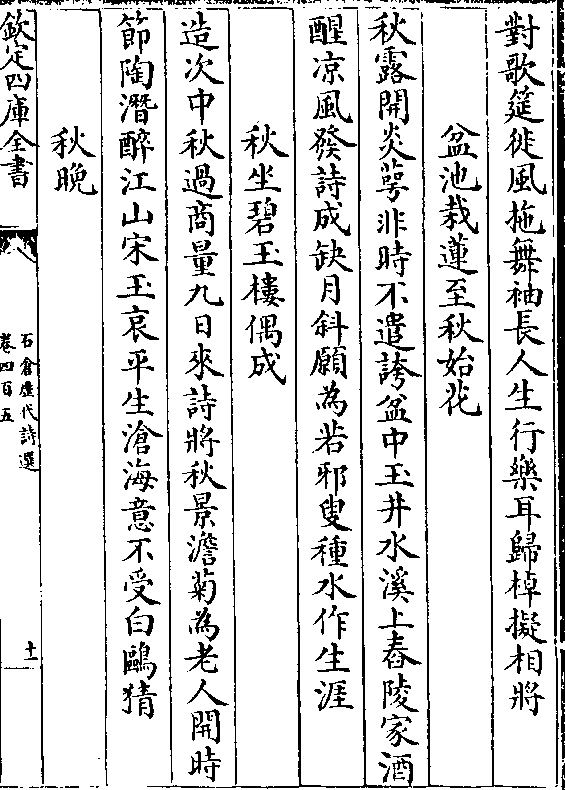 對歌筵徙風拖舞袖長人生行樂耳歸棹擬相將
盆池栽蓮至秋始花
秋露開炎萼非時不遣誇盆中玉井水溪上舂陵家酒
醒凉風發詩成缺月斜願為若邪叟種水作生涯
秋坐碧玉樓偶成
造次中秋過商量九日來詩將秋景澹菊為老人開時
節陶潛醉江山宋玉哀平生滄海意不受白鷗猜
秋晚
欽定四庫全書
石倉歷代詩選
卷四百五
十一